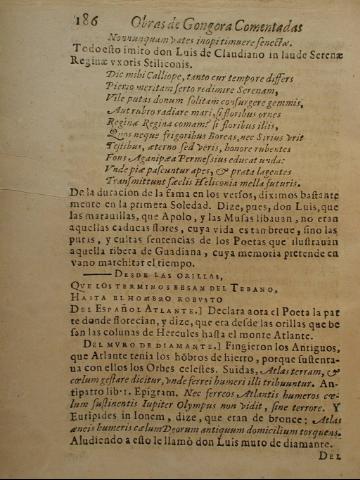 186 Obras de Gongora Comentadas
Nonnunquam vates inopi timuere senectæ.
Todo esto imitò don Luis de Claudiano in laude Serenæ
Reginæ vxoris Stiliconis.
Dic mihi Calliope, tanto cur tempore differs
Pierio meritam serto redimire Serenam,
Vile putas donum solitam consurgere gemmis,
Aut rubro radiare mari, si floribus ornes
Reginæ Regina comam? si floribus illis,
Quos neque frigoribus Boreas, nec Sirius vrit
Æstibus, æterno sed veris, honore rubentes
Fons Aganipæa Permesius educat unda:
Unde piæ pascuntur apes, & prata legentes
Transmittunt sæclis Heliconia mella futuris.
De la duracion de la fama en los versos, diximos bastante
mente en la primera Soledad. Dize, pues, don Luis, que
las marauillas, que Apolo, y las Musas libauan, no eran
aquellas caducas flores, cuya vida es tan breue, sino las
puras, y cultas sentencias de los Poetas que ilustrauan
aquella ribera de Guadiana, cuya memoria pretende en
vano marchitar el tiempo.
——DESDE LAS ORILLAS,
QUE LOS TERMINOS BESAN DEL TEBANO,
HASTA EL HOMBRO ROBUSTO
DEL ESPAÑOL ATLANTE.] Declara aora el Poeta la par
te donde florecian, y dize, que era desde las orillas que be
san las colunas de Hercules hasta el monte Atlante.
DEL MVRO DE DIAMANTE.] Fingieron los Antiguos,
que Atlante tenia los hõbros de hierro, porque sustenta-
ua con ellos los Orbes celestes. Suidas, Atlas terram, &
cœlum gestare dicitur, vnde ferrei humeri illi tribuuntur. An-
tipatro lib. 1. Epigram. Nec ferreos Atlantis humeros cœ-
lum sustinentis Iupiter Olympus non vidit, sine terrore. Y
Euripides in Ionem, dize, que eran de bronce: Atlas
æneis humeris cælum Deorum antiquum domicilium torquens.
Aludiendo a esto le llamò don Luis muro de diamante.
DEL